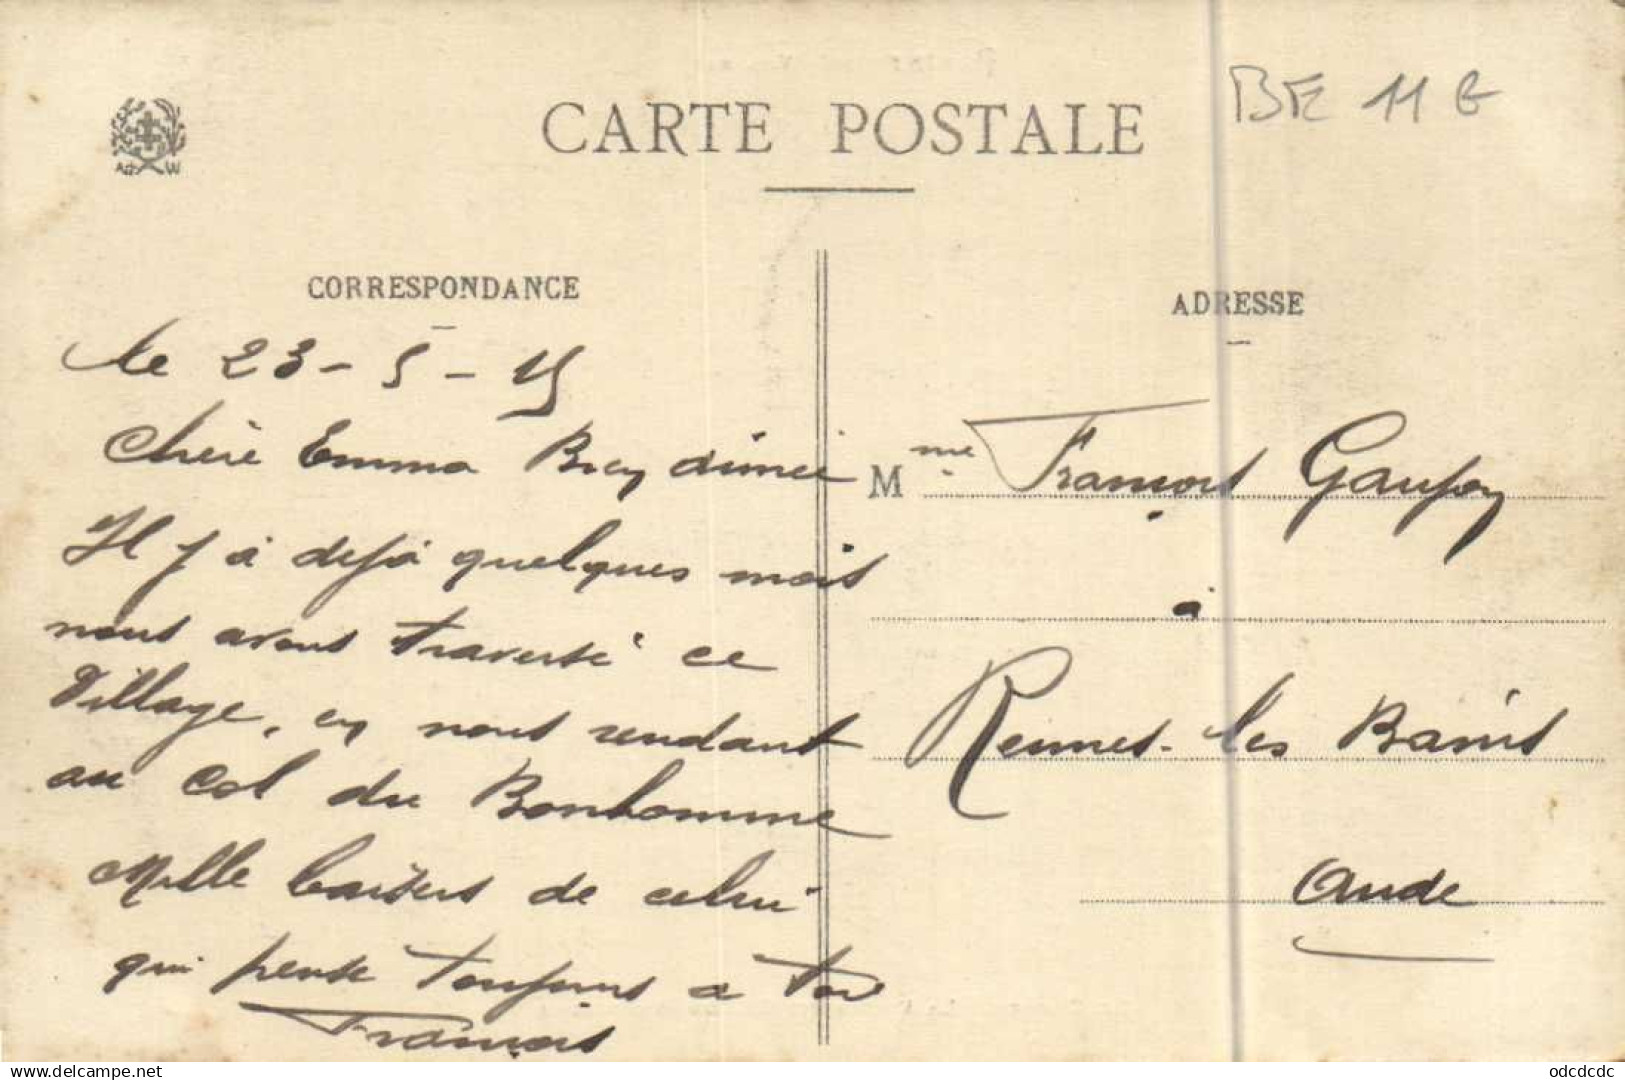 CARTE POSTALE
BE 11 E
Ad W
CORRESPONDANCE
ADRESSE
le 23-5-15
Chère Emma Bien aimée
Il y a déjà quelques mois
nous avons traversé ce
Village, en nous rendant
au Col du Bonhomme
Mille baisers de celui
qui pense toujours a toi
François
Mme François Gaufoy
à
Rennes-les Bains
Aude
delcampe.net
odcdcdc